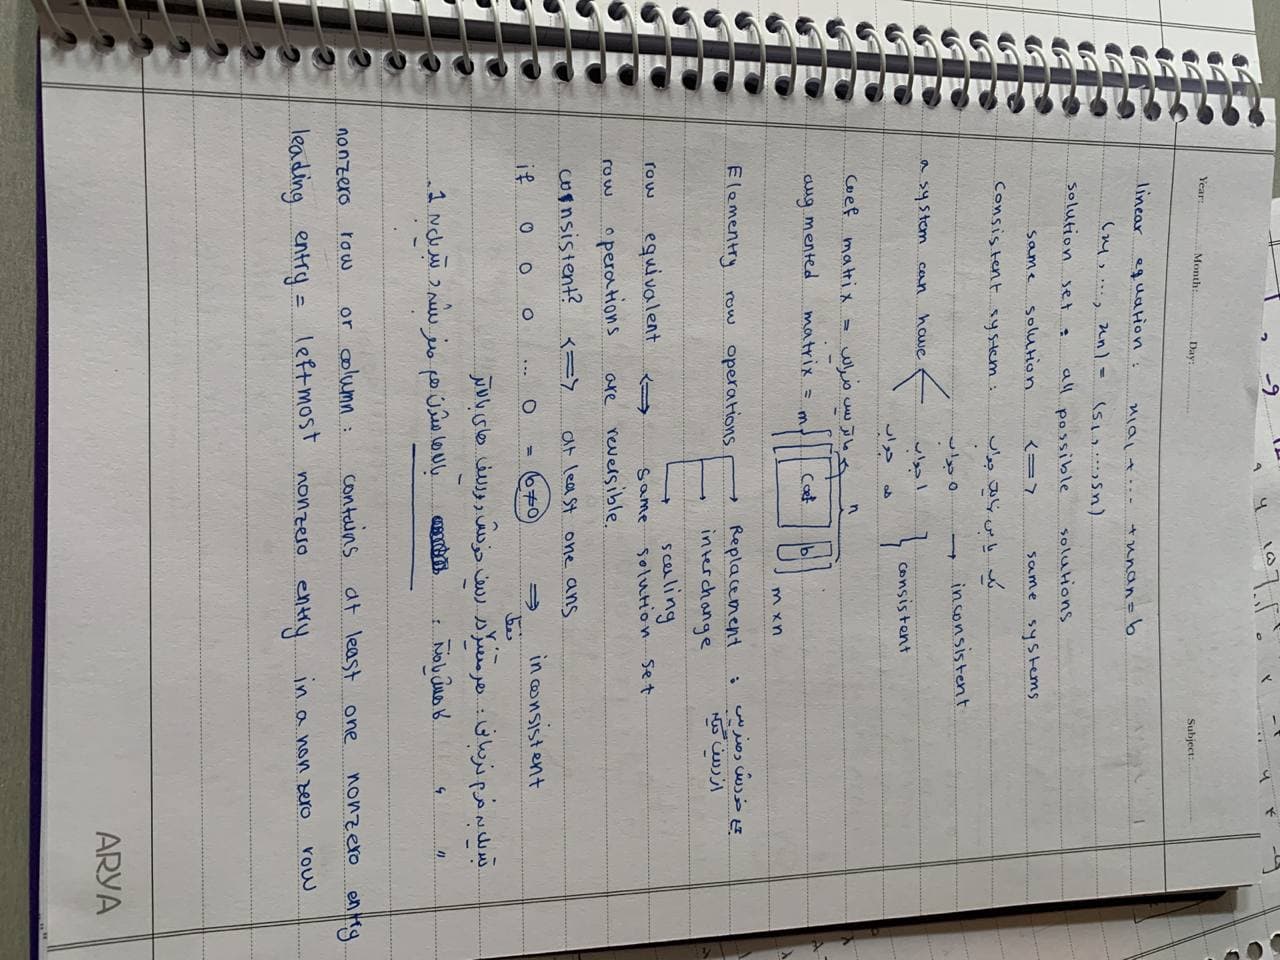 Year: Month: Day: Subject:
linear equation : x1a1 + ... + xnan = b
(x1, ..., xn) = (s1, ..., sn)
solution set : all possible solutions
same solution <=> same systems
consistent system : یک یا بی نهایت جواب
0 جواب → inconsistent
a system can have 1 جواب } consistent
∞ جواب
coef matrix = ماتریس ضرایب n
augmented matrix = m { [ coef b ] m×n
Elementry row operations → Replacement : جمع خودش و ضریبی
از ردیف دیگه
→ interchange
→ scaling
row equivalent <=> same solution set
row operations are reversible.
consistent? <=> at least one ans
if 0 0 0 ... 0 = b≠0 => inconsistent
فقط
تبدیل به فرم نردبانی : هر متغیر در ردیف خودش و ردیف های بالاتر
" " کاهش یافته : بالاها شون هم صفر بشه و تبدیل به 1.
nonzero row or column : contains at least one nonzero entry
leading entry = leftmost nonzero entry in a nonzero row
ARYA